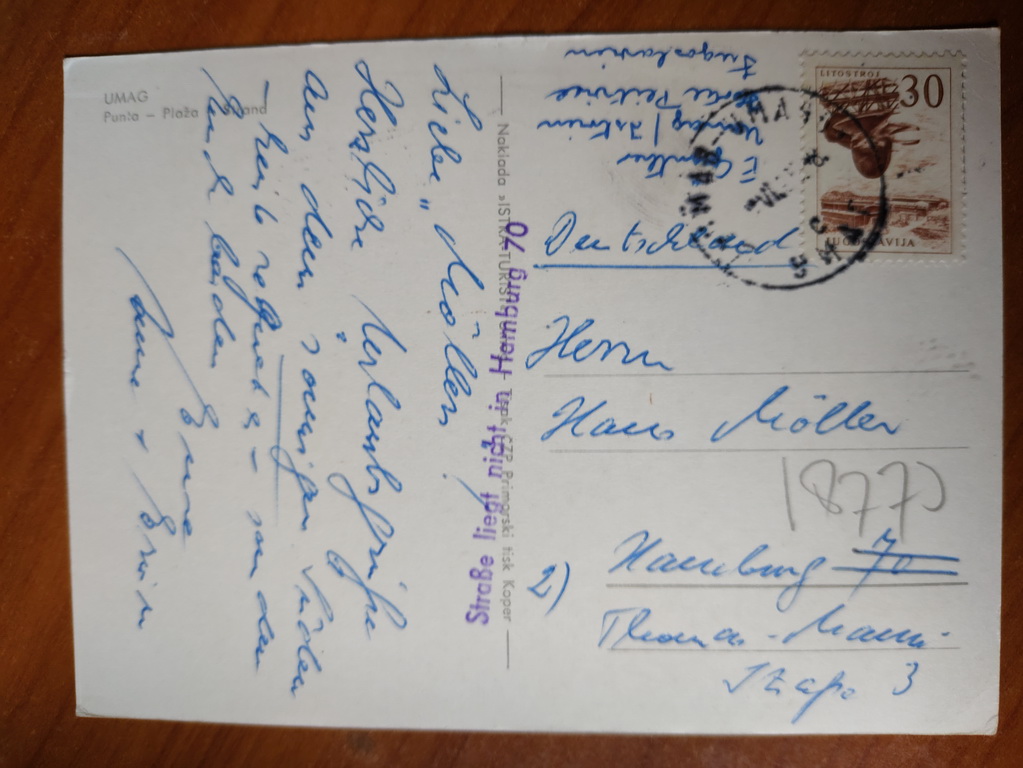 UMAG
Punta – Plaža
Liebe „Möllers"!
Herzliche Urlaubsgrüße
aus dem sonnigen Süden
– heute regnet es – von den
Eure
und Erwin
Naklada »ISTRATURIST« Tisak ČZP Primorski tisk Koper
Straße liegt nicht in Hamburg 70
Jugoslavien
LITOSTROJ
30
JUGOSLAVIJA
UMAG
Deutschland
Herrn
Hans Möller
1877
2) Hamburg 70
Thomas-Mann-
Straße 3